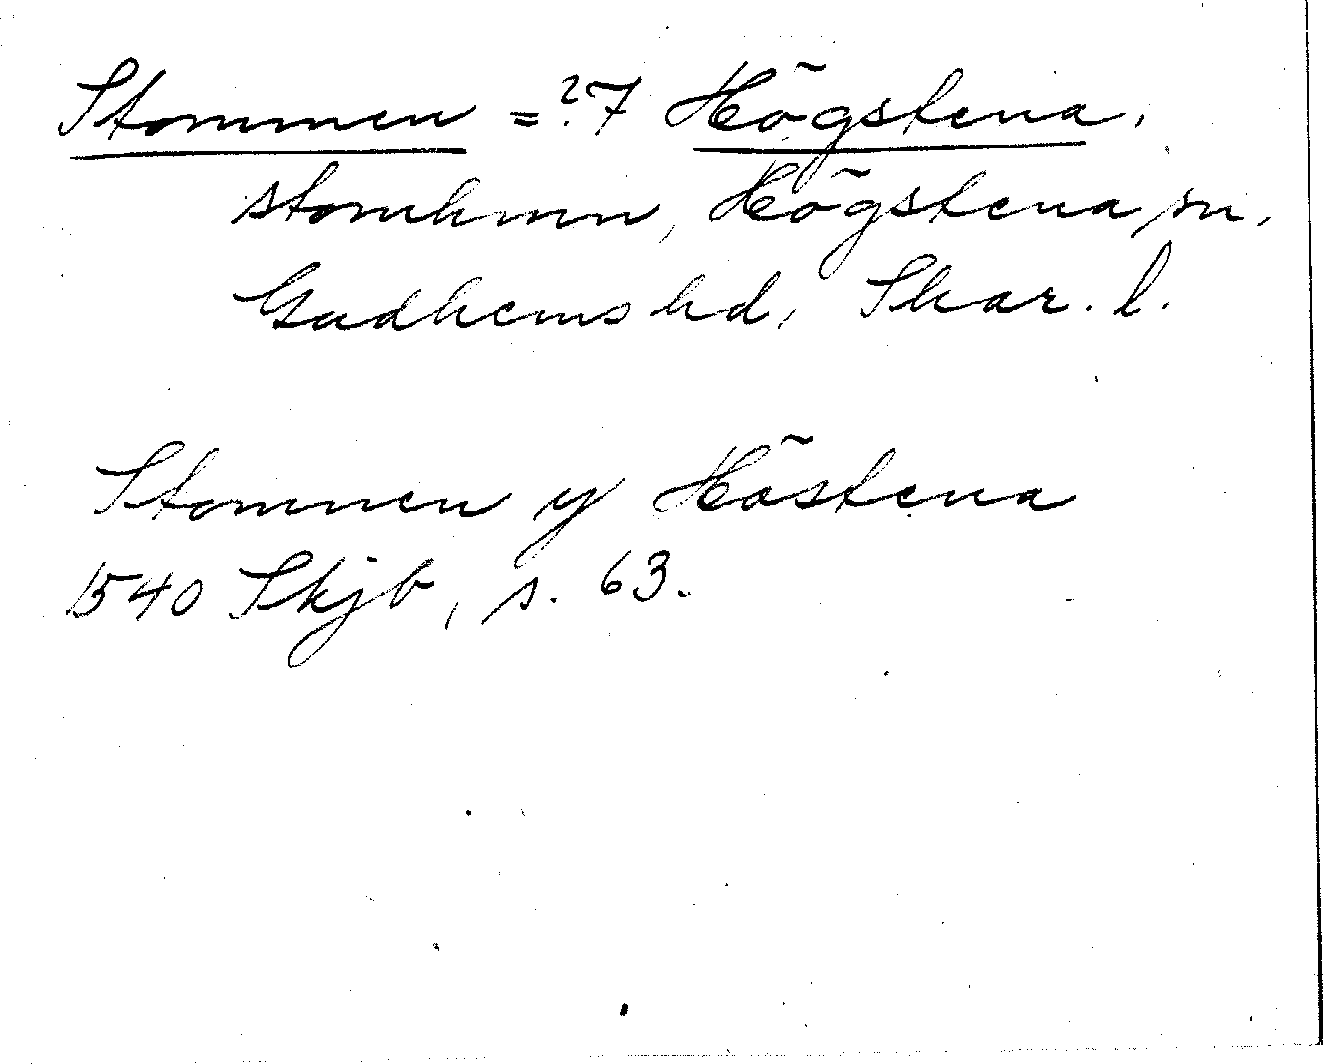 Stommen =? 7 Högstena,
stomhmn, Högstena sn,
Gudhems hd, Skar. l.
Stommen y Höstena
1540 Skjb, s. 63.